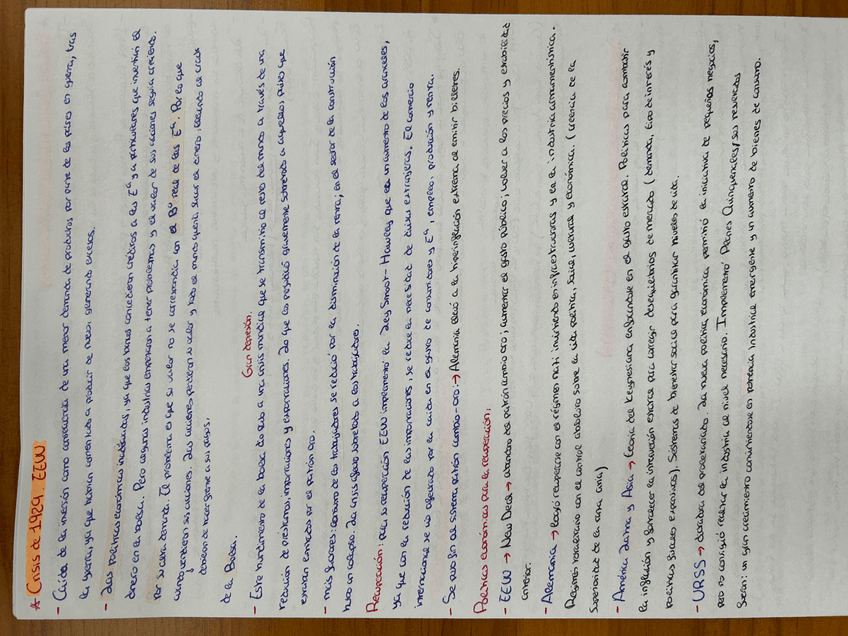 * Crisis de 1929 EEUU
- Caída de la inversión como consecuencia de una menor demanda de productos por parte de los países en guerra, tras
la guerra, ya que habían comenzado a producir de nuevo, generando excesos.
- Las políticas económicas inadecuadas, ya que los bancos concedieron créditos a las Eas y a particulares que invertían el
dinero en la bolsa. Pero algunas industrias empezaron a tener problemas y el valor de sus acciones seguía creciendo
por su alta demanda. El problema es que su valor no se correspondía con el Bº real de las Eas. Por lo que
cuando vendieron sus acciones. Las acciones perdieron su valor y todo el mundo quería sacar el dinero, llevando al crack
de la Bolsa. dejaron de hacer frente a sus pagos,
Gran depresión.
- Este hundimiento de la bolsa dio lugar a una crisis mundial que se transmitió al resto del mundo a través de una
reducción de préstamos, importaciones y exportaciones. Lo que los perjudicó gravemente sobretodo a aquellos países que
estaban anclados por el patrón oro.
- más factores: consumo de los trabajadores se redujo por la disminución de la renta, en el sector de la construcción
hubo un colapso. La crisis afectó sobretodo a los trabajadores.
Recuperación: para su recuperación EEUU implementó la Ley Smoot-Hawley que es un aumento de los aranceles,
ya que con la reducción de las importaciones, se reduce la necesidad de divisas extranjeras. El comercio
internacional se vio afectado por la caída en el gasto de consumidores y Eas, empleo, producción y renta.
- Se puso fin al sistema patrón cambio-oro: → Alemania llevó a la hiperinflación extrema al emitir billetes.
Políticas económicas para la recuperación:
- EEUU → New Deal → abandono del patrón cambio oro; aumentar el gasto público; volver a los precios y estabilidad
anterior.
- Alemania → logró recuperarse con el régimen nazi invirtiendo en infraestructuras y en la industria armamentística.
Régimen totalitario con el control absoluto sobre la vida política, social, cultural y económica. (creencia de la
superioridad de la raza aria)
- América Latina y Asia → teoría del keynesiana enfocándose en el gasto estatal. Políticas para combatir
la inflación y fortalecer la intervención estatal para corregir desequilibrios de mercado (demanda, tipo de interés y
políticas fiscales expansivas). Sistemas de bienestar social para garantizar niveles de vida.
- URSS → dictadura del proletariado. La nueva política económica permitió la iniciativa de pequeños negocios,
pero no consiguió reactivar la industria al nivel necesario. Implementó Planes Quinquenales, sus resultados
fueron: un gran crecimiento convirtiéndose en potencia industrial emergente y un aumento de bienes de consumo.